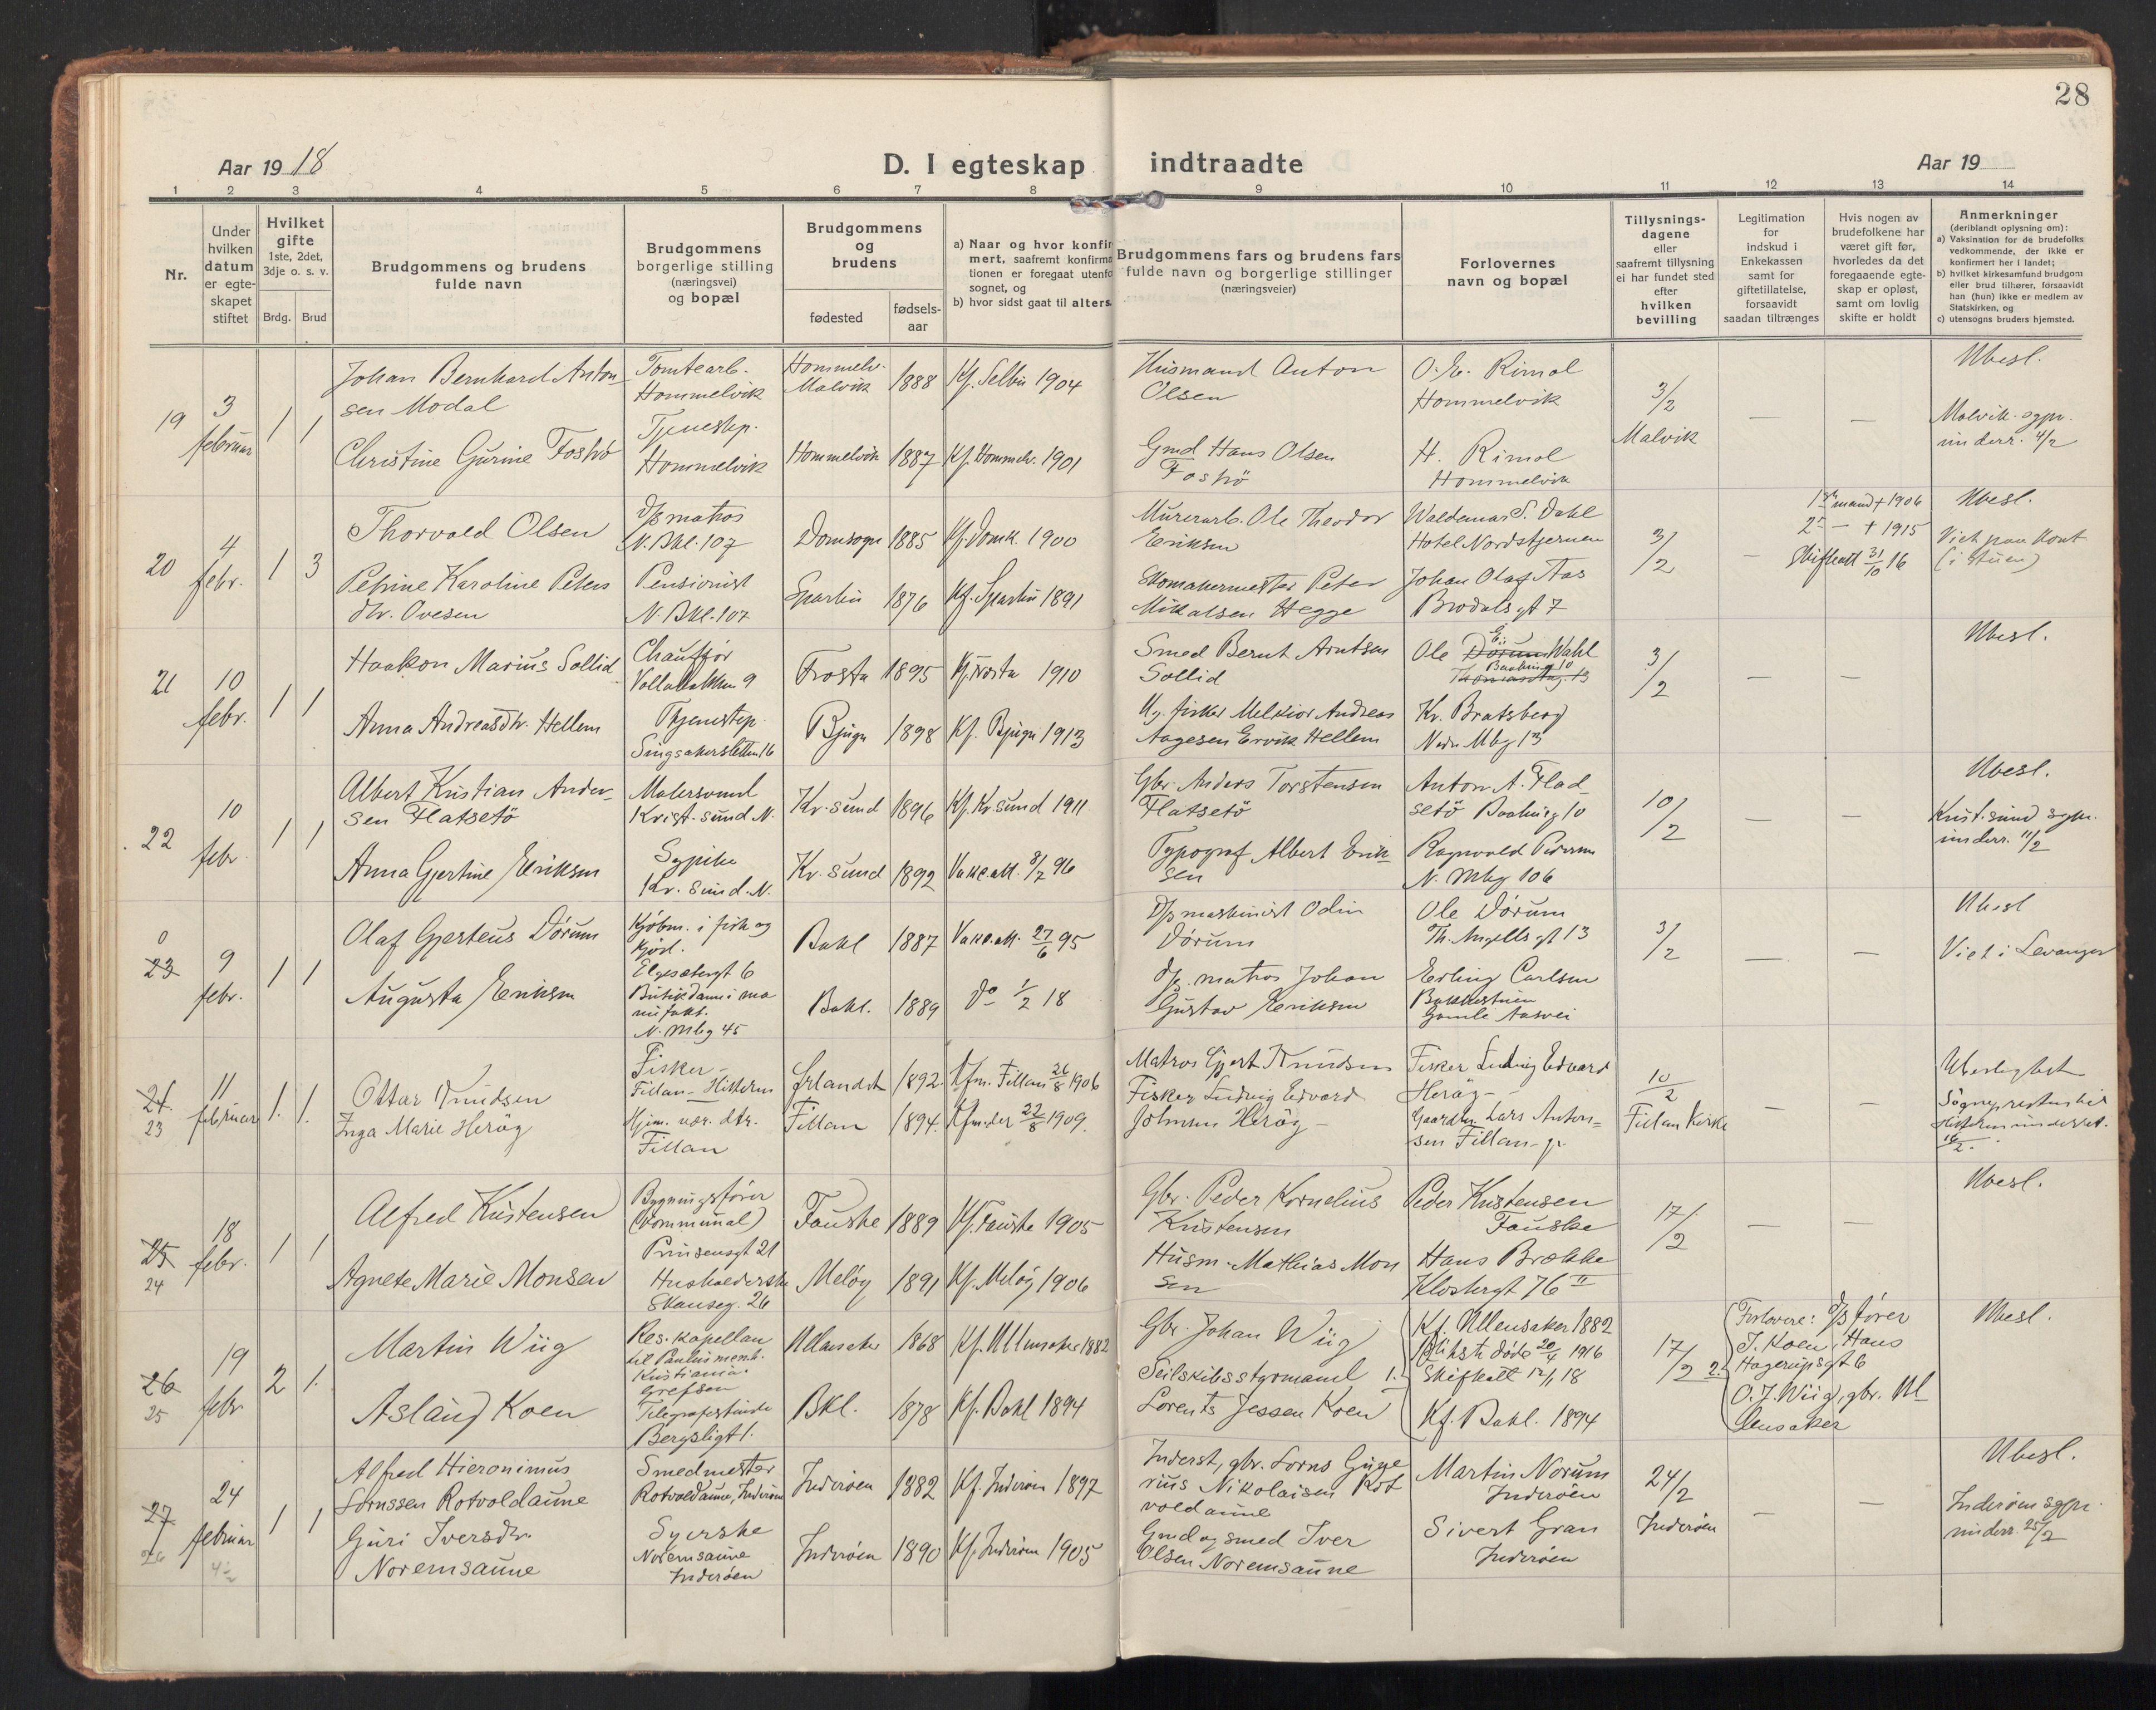 28
Aar 1918
D. I egteskap indtraadte
Aar 19
1 2 3 4 5 6 7 8 9 10 11 12 13 14
Nr.
Under hvilken datum er egteskapet stiftet
Hvilket gifte 1ste, 2det, 3dje o. s. v.
Brdg. Brud
Brudgommens og brudens fulde navn
Brudgommens borgerlige stilling (næringsvei) og bopæl
Brudgommens og brudens
fødested
fødsels-aar
a) Naar og hvor konfir
mert, saafremt konfirma
tionen er foregaat utenfo
sognet, og
b) hvor sidst gaat til alters.
Brudgommens fars og brudens fars
fulde navn og borgerlige stillinger
(næringsveier)
Forlovernes
navn og bopæl
Tillysnings-
dagene
eller
saafremt tillysning
ei har fundet sted
efter
hvilken
bevilling
Legitimation
for
indskud i
Enkekassen
samt for
giftetillatelse,
forsaavidt
saadan tiltrænges
Hvis nogen av
brudefolkene har
været gift før,
hvorledes da det
foregaaende egte-
skap er opløst,
samt om lovlig
skifte er holdt
Anmerkninger
(deriblandt oplysning om):
a) Vaksination for de brudefolks
vedkommende, der ikke er
konfirmert her i landet;
b) hvilket kirkesamfund brudgom
eller brud tilhører, forsaavidt
han (hun) ikke er medlem av
Statskirken, og
c) utensogns bruders hjemsted.
19
3
februar
1 1
Johan Bernhard Anton
sen Modal
Tomtearb.
Hommelvik
Hommelv.
Malvik
1888
Kf. Selbu 1904
Husmand Anton
Olsen
O. E. Rimol
Hommelvik
3/2
Malvik
—
—
Ubesl.
Malvik sgpr.
underr. 4/2
Christine Gurine Foshö
Tjenestep.
Hommelvik
Hommelvik
1887
Kf. Hommelv. 1901
Gmd Hans Olsen
Foshö
H. Rimol
Hommelvik
20
4
febr.
1 3
Thorvald Olsen
D/s matros
N. Bkl. 107
Domsogn
1885
Kf. Domk. 1900
Murerarb. Ole Theodor
Eriksen
Waldemar S. Dahl
Hotel Nordstjernen
3/2
—
1ste mand † 1906
2n — † 1915
Skifteatt 31/10 16
Ubesl.
Viet paa kont
(i stuen)
Petrine Karoline Peters
dtr. Ovesen
Pensionist
N. Bkl. 107
Sparbu
1876
Kf. Sparbu 1891
Skomakermester Peter
Mikalsen Hegge
Johan Olaf Aas
Brodals gt 7
21
10
febr.
1 1
Haakon Marius Sollid
Chauffør
Vollabakken 9
Frosta
1895
Kf. Frosta 1910
Smed Bernt Arntsen
Sollid
Ole Dörum Wahl
Baahusg 10
3/2
—
—
Ubesl.
Anna Andreasdtr. Hellem
Tjenestep.
Singsakersletten 16
Bjugn
1898
Kf. Bjugn 1913
Ug. fisker Melkior Andreas
Aagesen Ervik Hellem
Kr. Bratsberg
Nedre Mbg 13
22
10
febr
1 1
Albert Kristian Ander-
sen Flatsetö
Malersvend
Krist.sund N.
Kr.sund
1896
Kf. Kr.sund 1911
Gbr. Anders Torstensen
Flatsetö
Anton A. Flad
setö Baahusg 10
10/2
—
—
Ubesl.
Krist.sund sgpr.
underr. 11/2
Anna Gjertine Eriksen
Sypike
Kr.sund. N.
Kr.sund
1892
Vakc.att. 8/7 96
Typograf Albert Erik
sen
Ragnvald Pedersen
N. Mbg 106
0
23
9
febr.
1 1
Olaf Gjerteus Dörum
Kjöbm. i fisk og
kjöd.
Elgesetergt 6
Bakl
1887
Vakc.att. 27/6 95
D/s maskinist Odin
Dörum
Ole Dörum
Th. Angells gt 13
3/2
—
—
Ubesl
Viet i Levanger
Augusta Eriksen
Butikdame i ma
nufakt.
N. Mbg 45
Bakl.
1889
do 1/2 18
D/s. matros Johan
Gustav Eriksen
Erling Carlsen
Bakkestuen
Gamle Aasvei
24.
23
11
februar
1. 1.
Ottar Knudsen
Fisker -
Fillan - Hitteren
Ørlandet
1892.
Kfm. Fillan 26/8 1906
Matros Gjert Knudsen
Fisker Ludvig Edvard
Heröy -
10/2
Fillan Kirke
—
—
Ubeslegtet
Sognepresten til
Hitteren underret.
14/2.
Inga Marie Heröy
Hjem. vær. dtr.
Fillan
Fillan
1894.
Kfm. der 22/8 1909.
Fisker Ludvig Edvard
Johnsen Heröy -
Gaardbr. Lars Anton=
sen Fillan - gr
25
24
18
febr.
1 1
Alfred Kristensen
Bygningsfører
(Kommunal)
Prinsensgt 21
Fauske
1889
Kf. Fauske 1905
Gbr. Peder Kornelius
Kristensen
Peder Kristensen
Fauske
17/2
—
—
Ubesl.
Agnete Marie Monsen
Husholderske
Skanseg. 26
Meløy
1891
Kf. Meløy 1906
Husm. Mathias Mon
sen
Hans Brække
Klostergt 76 II
26
25
19
febr
2 1.
Martin Wiig
Res. kapellan
til Paulus menh.
Kristiania
Grefsen
Ullensaker
1868
Kf. Ullensaker 1882
Gbr. Johan Wiig
Kf. Ullensaker 1882
døde 20/4 1916
Skifteatt 12/1 18
17/2
Forlovere: D/s fører
J. Koen, Hans
Hagerupsgt 6
O. J. Wiig, gbr. Ul
lensaker
Ubesl.
Aslaug Koen
Telegrafistinde
Bergsligt 1.
Bkl.
1878
Kf. Bakl 1894
Seilskibsstyrmand
Lorents Jessen Koen
Kf. Bakl. 1894
27
26
24
februar
1 1
Alfred Hieronimus
Lornssen Rotvoldaune
Smedmester
Rotvoldaune, Inderøen
Inderøen
1882
Kf. Inderøen 1897
Inderst, gbr. Lorns
rius Nikolaisen Rot
voldaune
Martin Norum
Inderøen
24/2
Inderøen
—
—
Ubesl.
Inderøens sgpr.
underr. 25/2
Guri Iversdtr.
Noremsaune
Syerske
Noremsaune
Inderøen
Inderøen
1890
Kf. Inderøen 1905
Gmd og smed Iver
Olsen Noremsaune
Sivert Gran
Inderøen